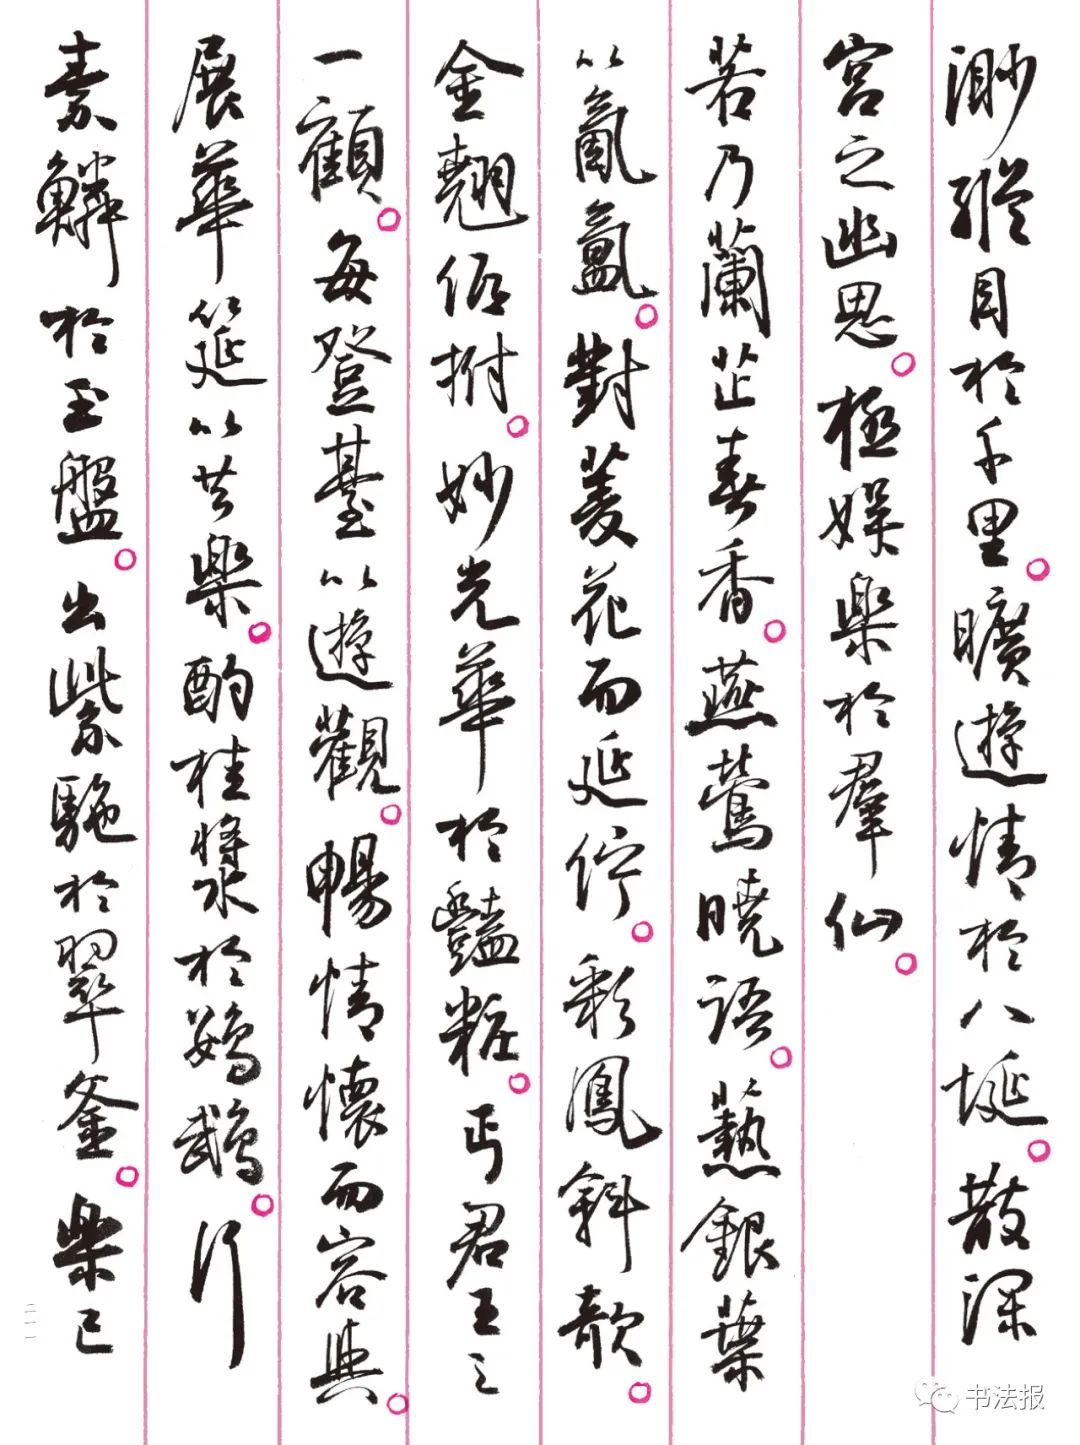 渺縱目於千里。曠遊情於八埏。散深
宮之幽思。極娛樂於羣仙。
若乃蘭芷春香。燕鶯曉語。爇銀葉
以氤氳。對菱花而延佇。彩鳳斜欹。
金翹低拊。妙光華於豔粧。丐君王之
一顧。每登臺以遊觀。暢情懷而容與。
展華筵以共樂。酌桂漿於鸚鵡。行
素鱗於玉盤。出紫駝於翠釜。樂已
二一一
书法报